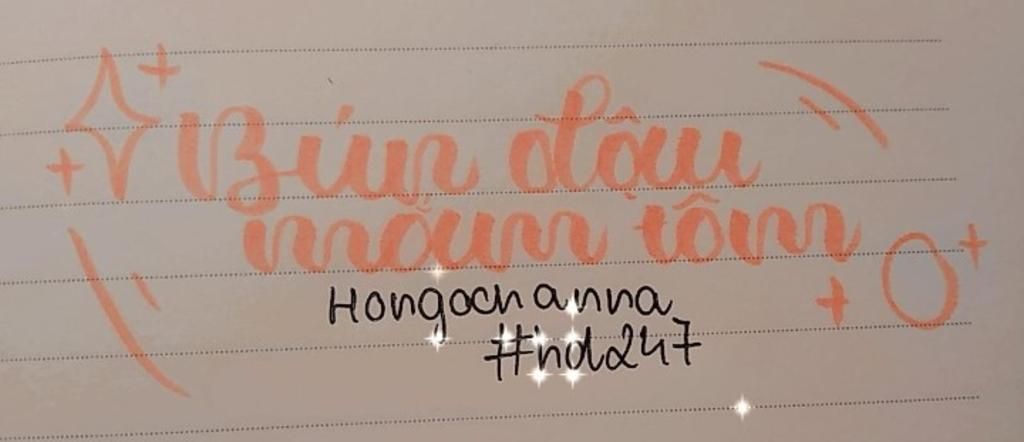 Bún đậu
mắm tôm
Hongochanna
#hd247